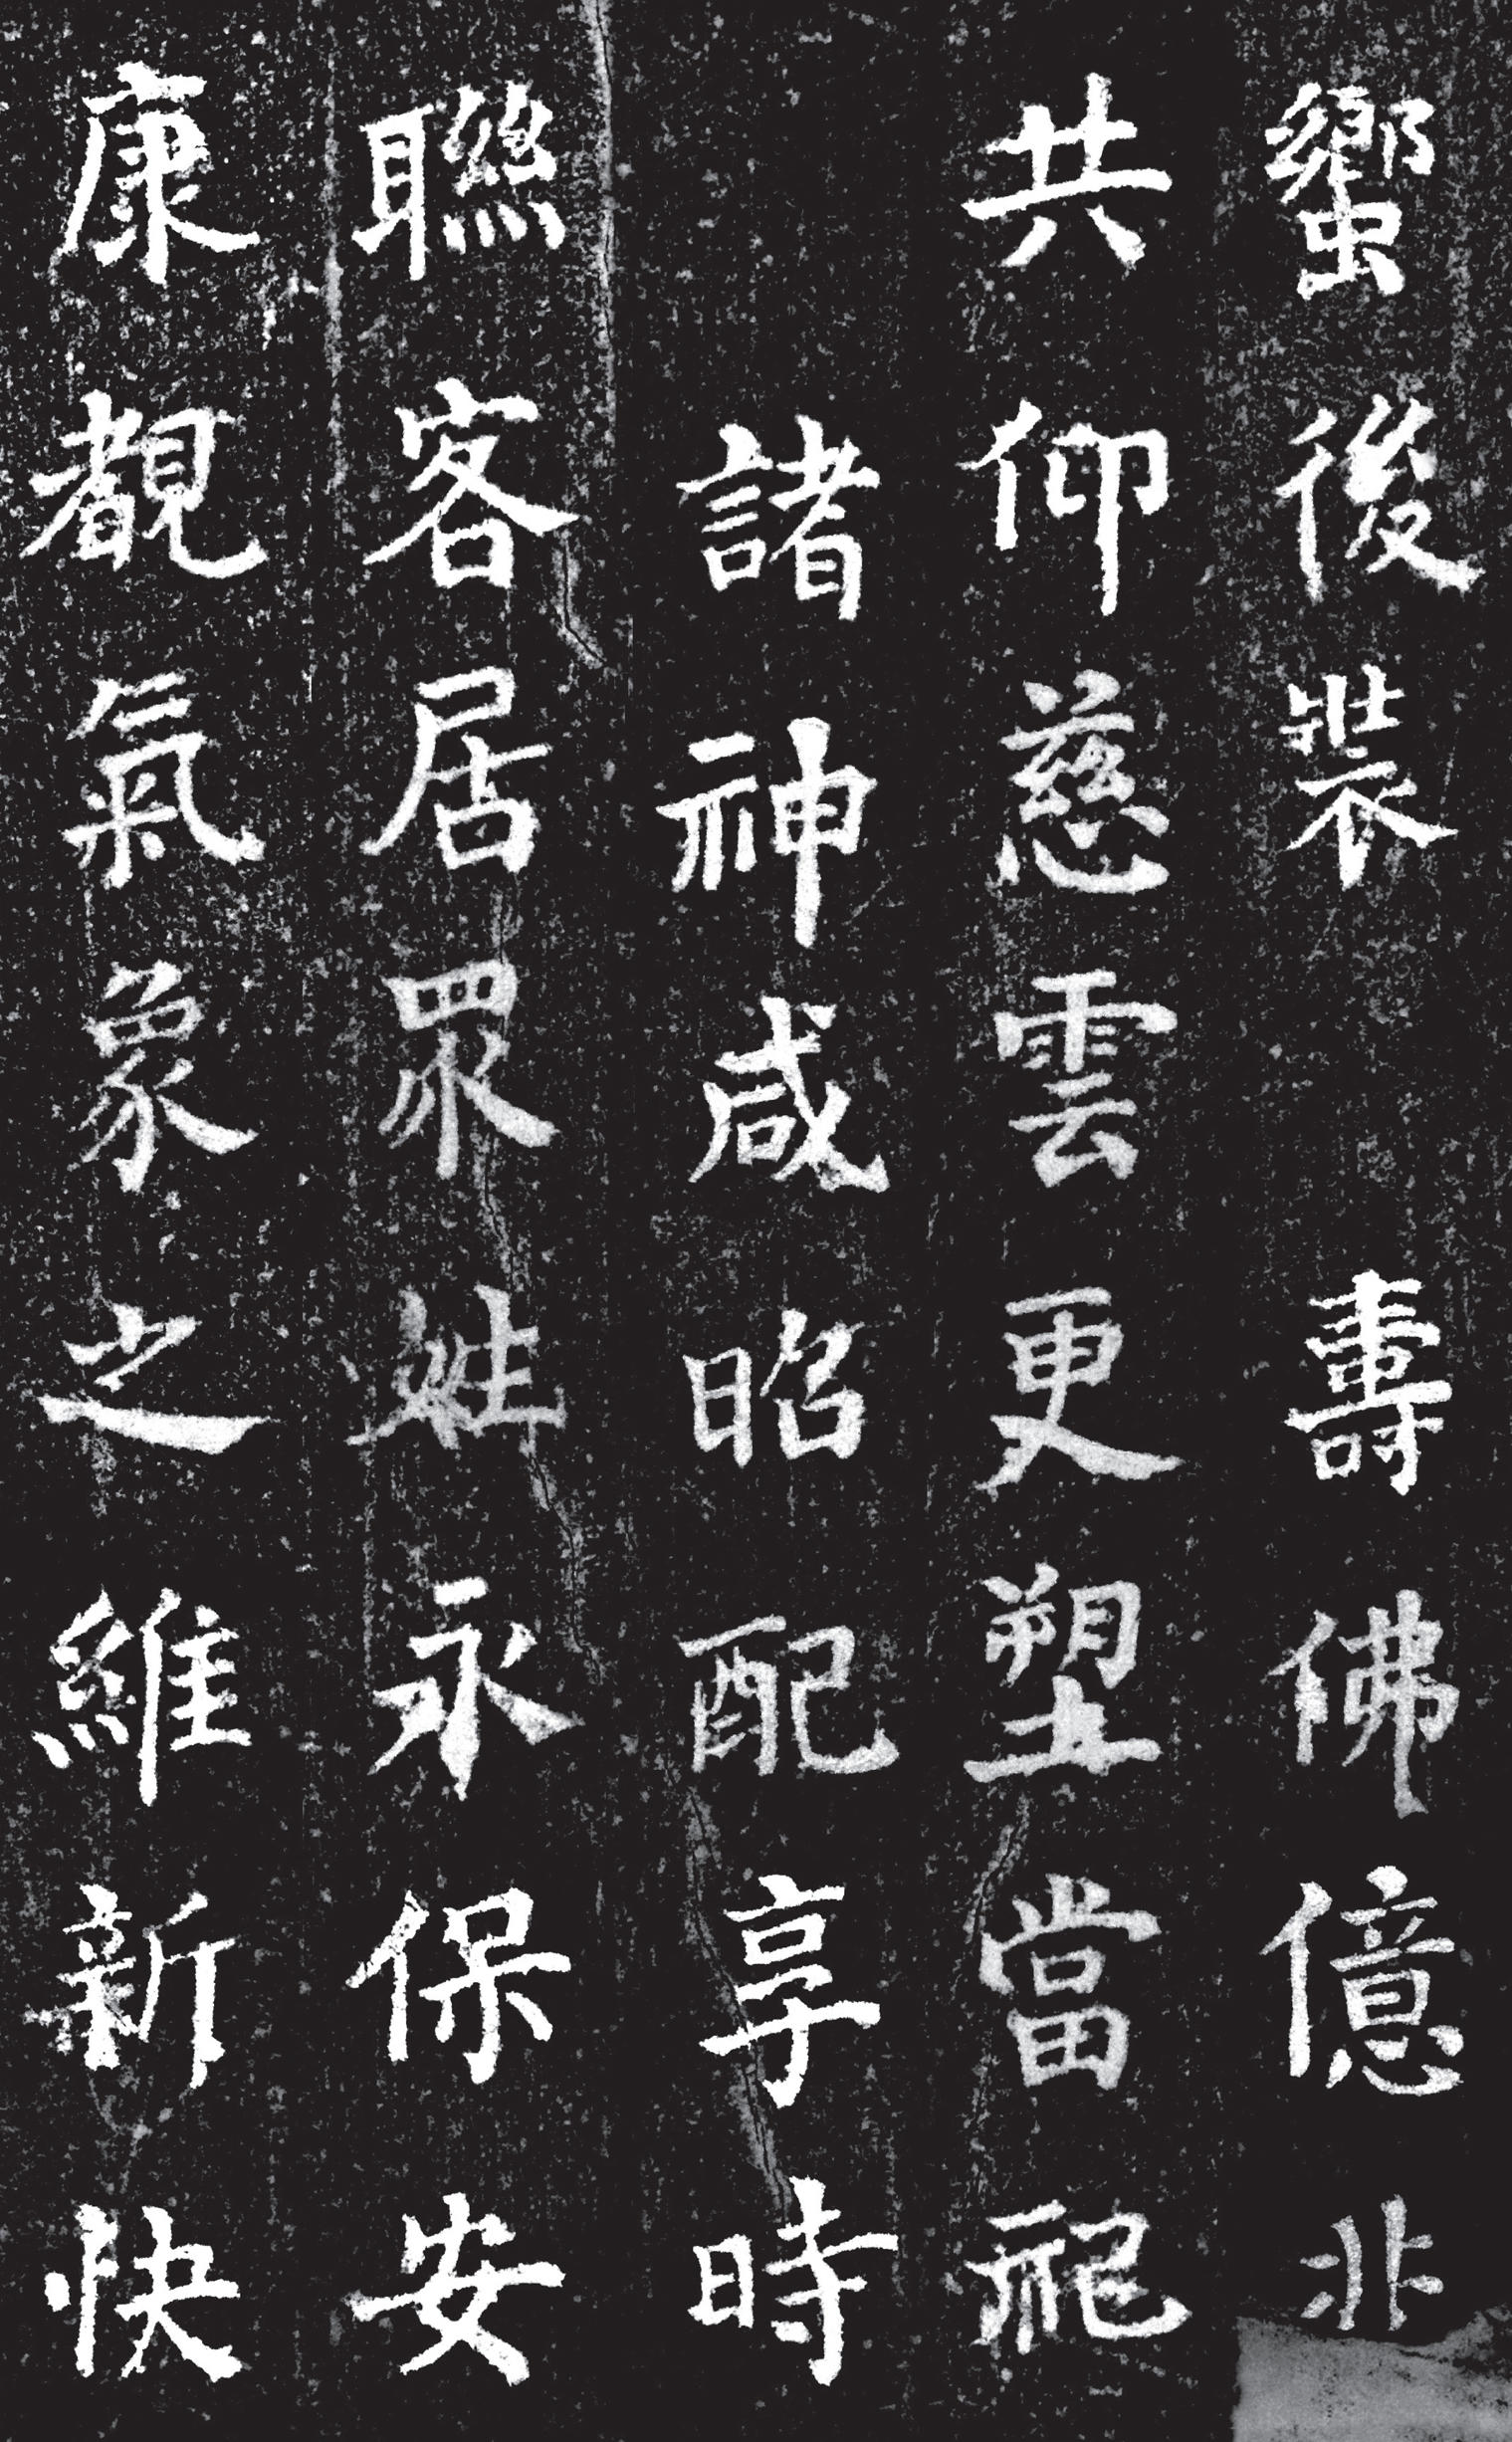 蠁後裝　壽佛億兆
共仰慈雲更塑當祀
諸神咸昭配享時
聯客居眾姓永保安
康覩氣象之維新快